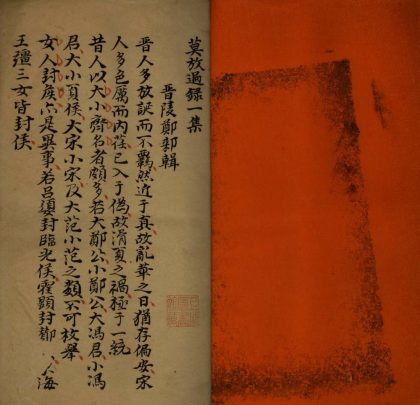 莫放過錄一集
晉陵鄭鄤輯
晉人多放誕而不羈然近于真故亂華之日猶存偏安宋
人多色厲而內荏已入于偽故滑夏之禍極于一統
昔人以大小齊名者頗多若大鄭公小鄭公大馮君小馮
君大小夏侯大宋小宋及大范小范之類不可枚舉
女人封侯亦是異事若呂嬃封臨光侯霍顯封海
王彊三女皆封侯